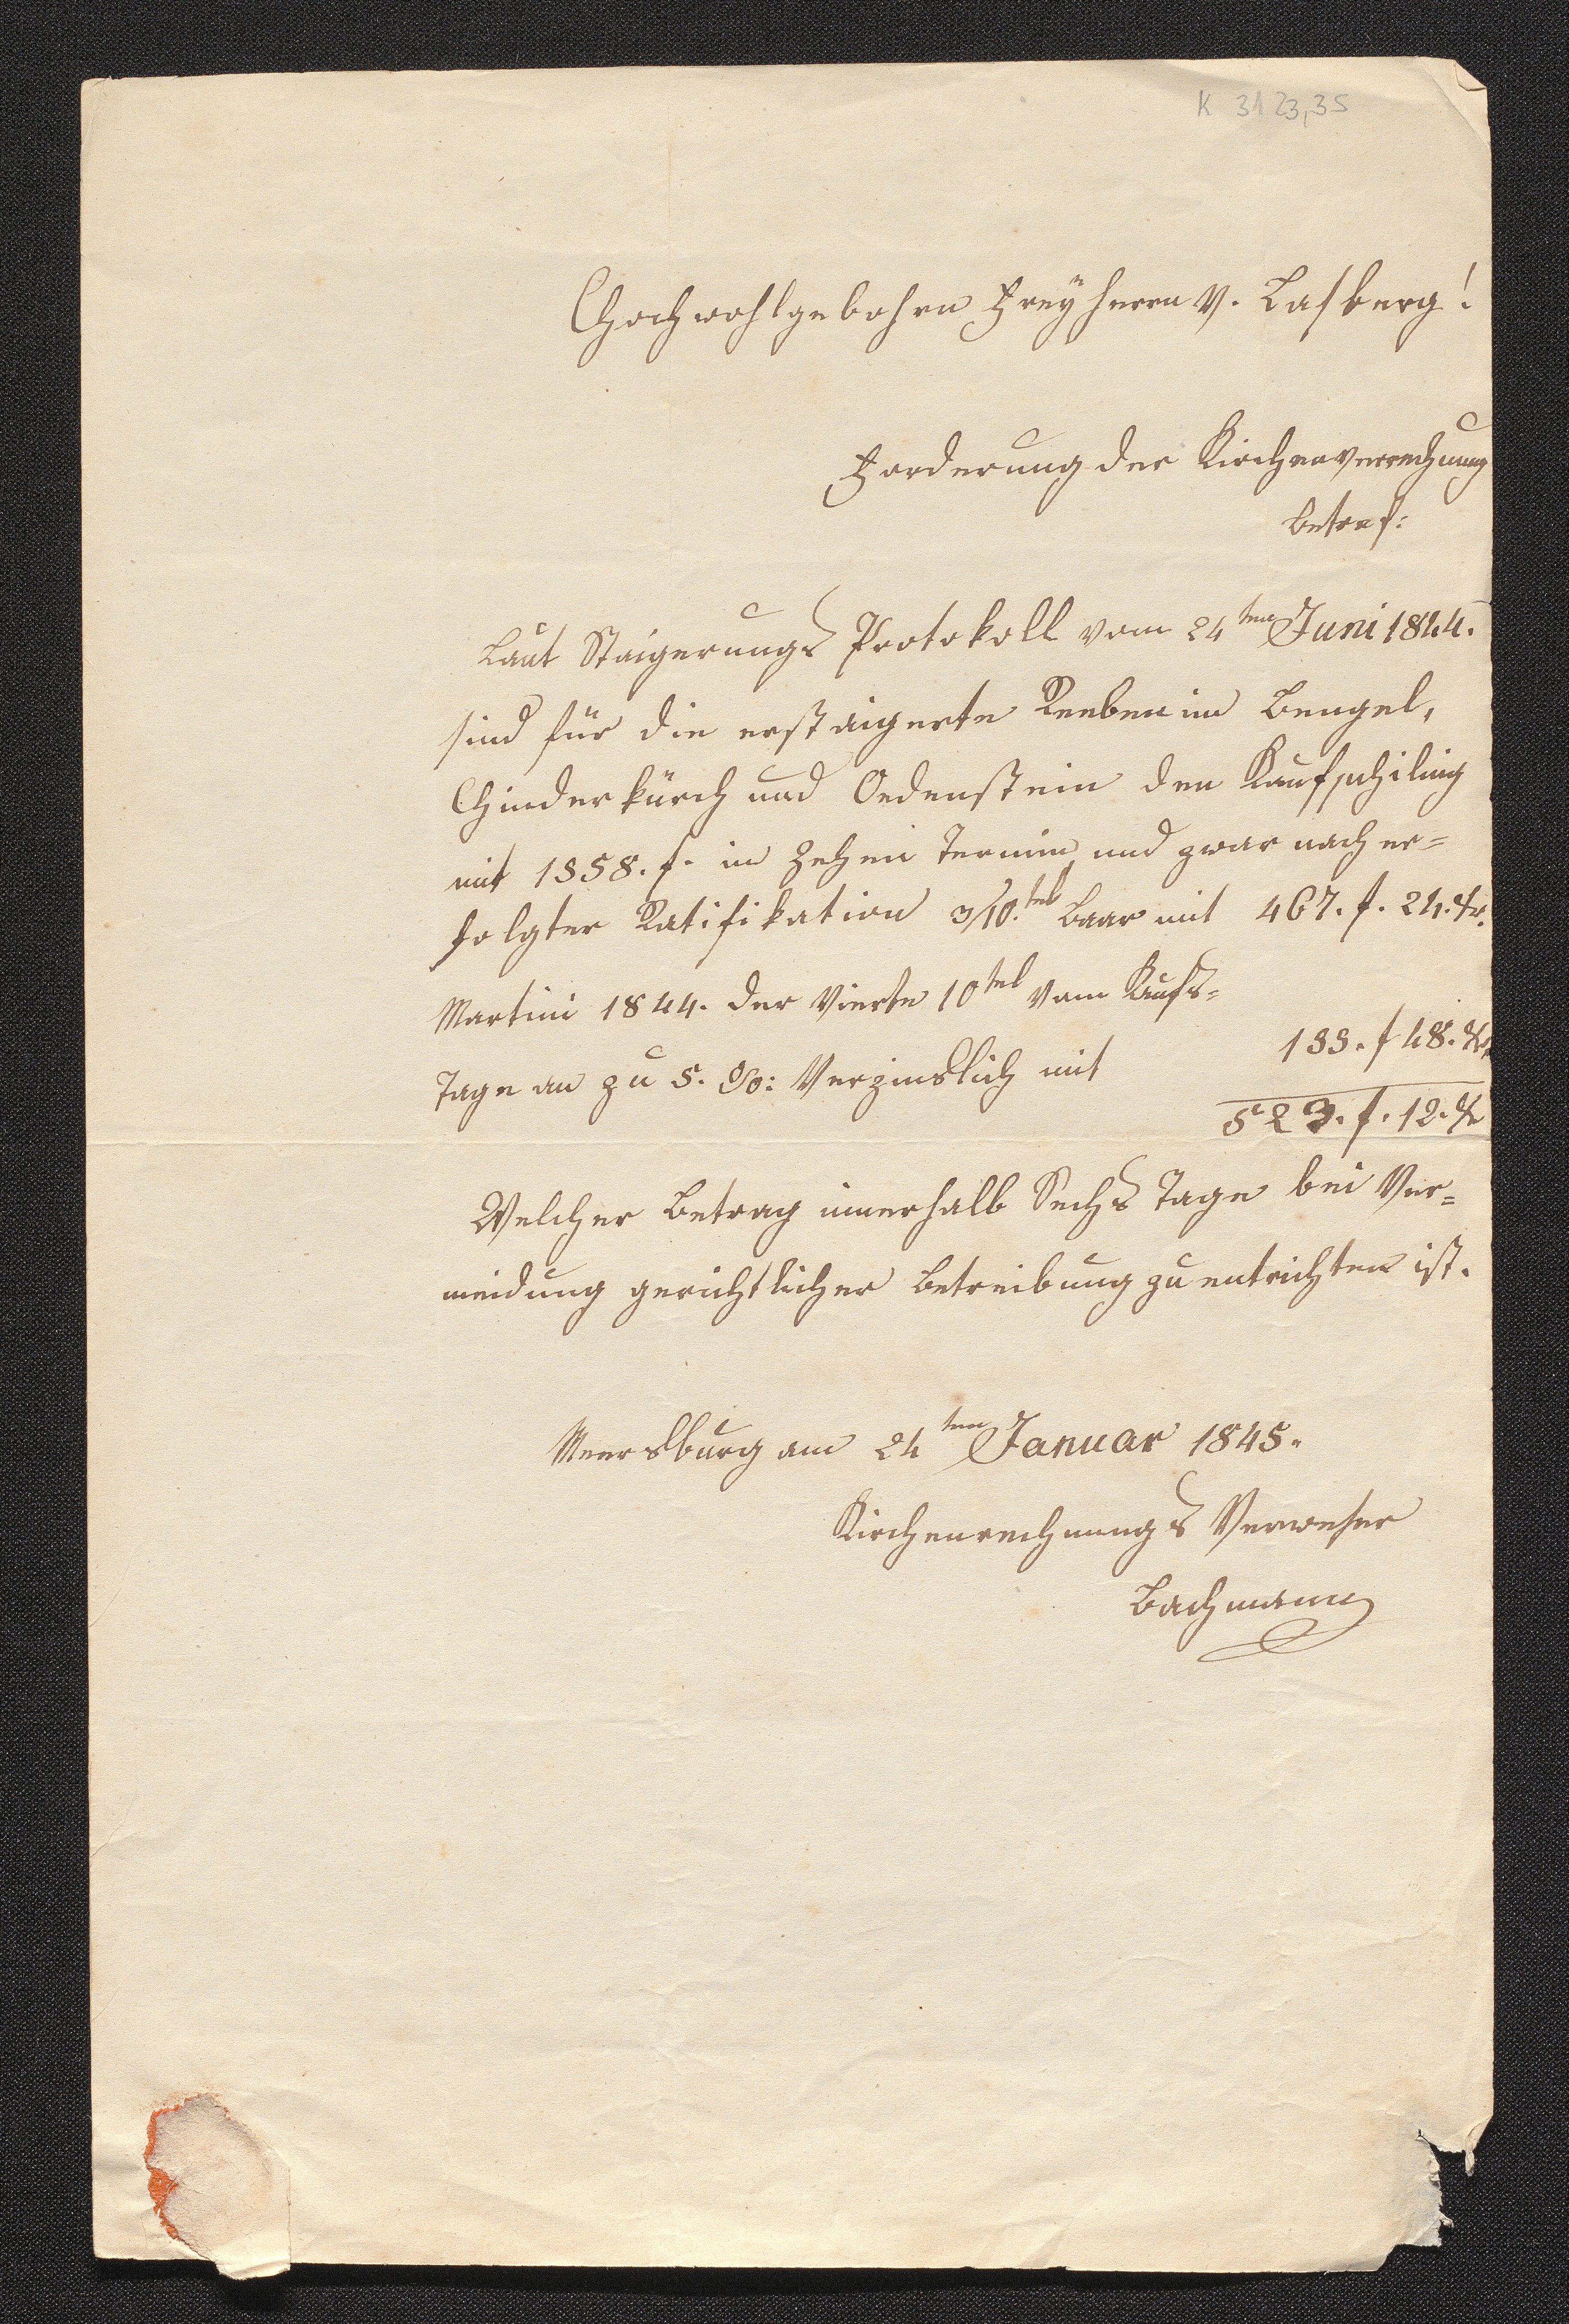 K 3123,35
Hochwohlgebohrn Freyherrn v. Lasberg!
Forderung der Kirchenverrechnung
betref:
Laut Staigerungs Protokoll vom 24ten Juni 1844.
sind für die erstaigerte Reeben im Bengel,
Hinderkürch und Oedenstein den Kaufschiling
mit 1558. f. in Zehen Termin, und zwar nach er=
folgter Ratifikation 3/10.tel Baar mit 467. f. 24. kr.
Martini 1844. der Vierte 10tel vom Kaufs=
Tage an zu 5. %: Verzinslich mit 155. f 48. kr.
623. f. 12. kr
Welcher Betrag innerhalb Sechs Tage bei Ver=
meidung gerichtlicher Betreibung zu entrichten ist.
Meersburg am 24ten Januar 1845.
Kirchenrechnungs Verweser
Bachmann